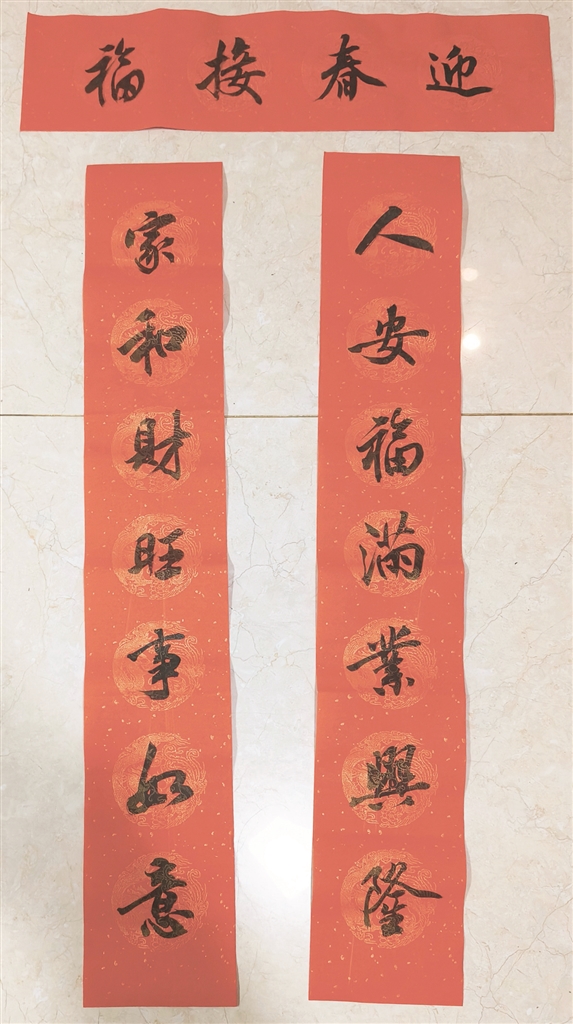 迎春接福
人安福满業興隆
家和財旺事如意